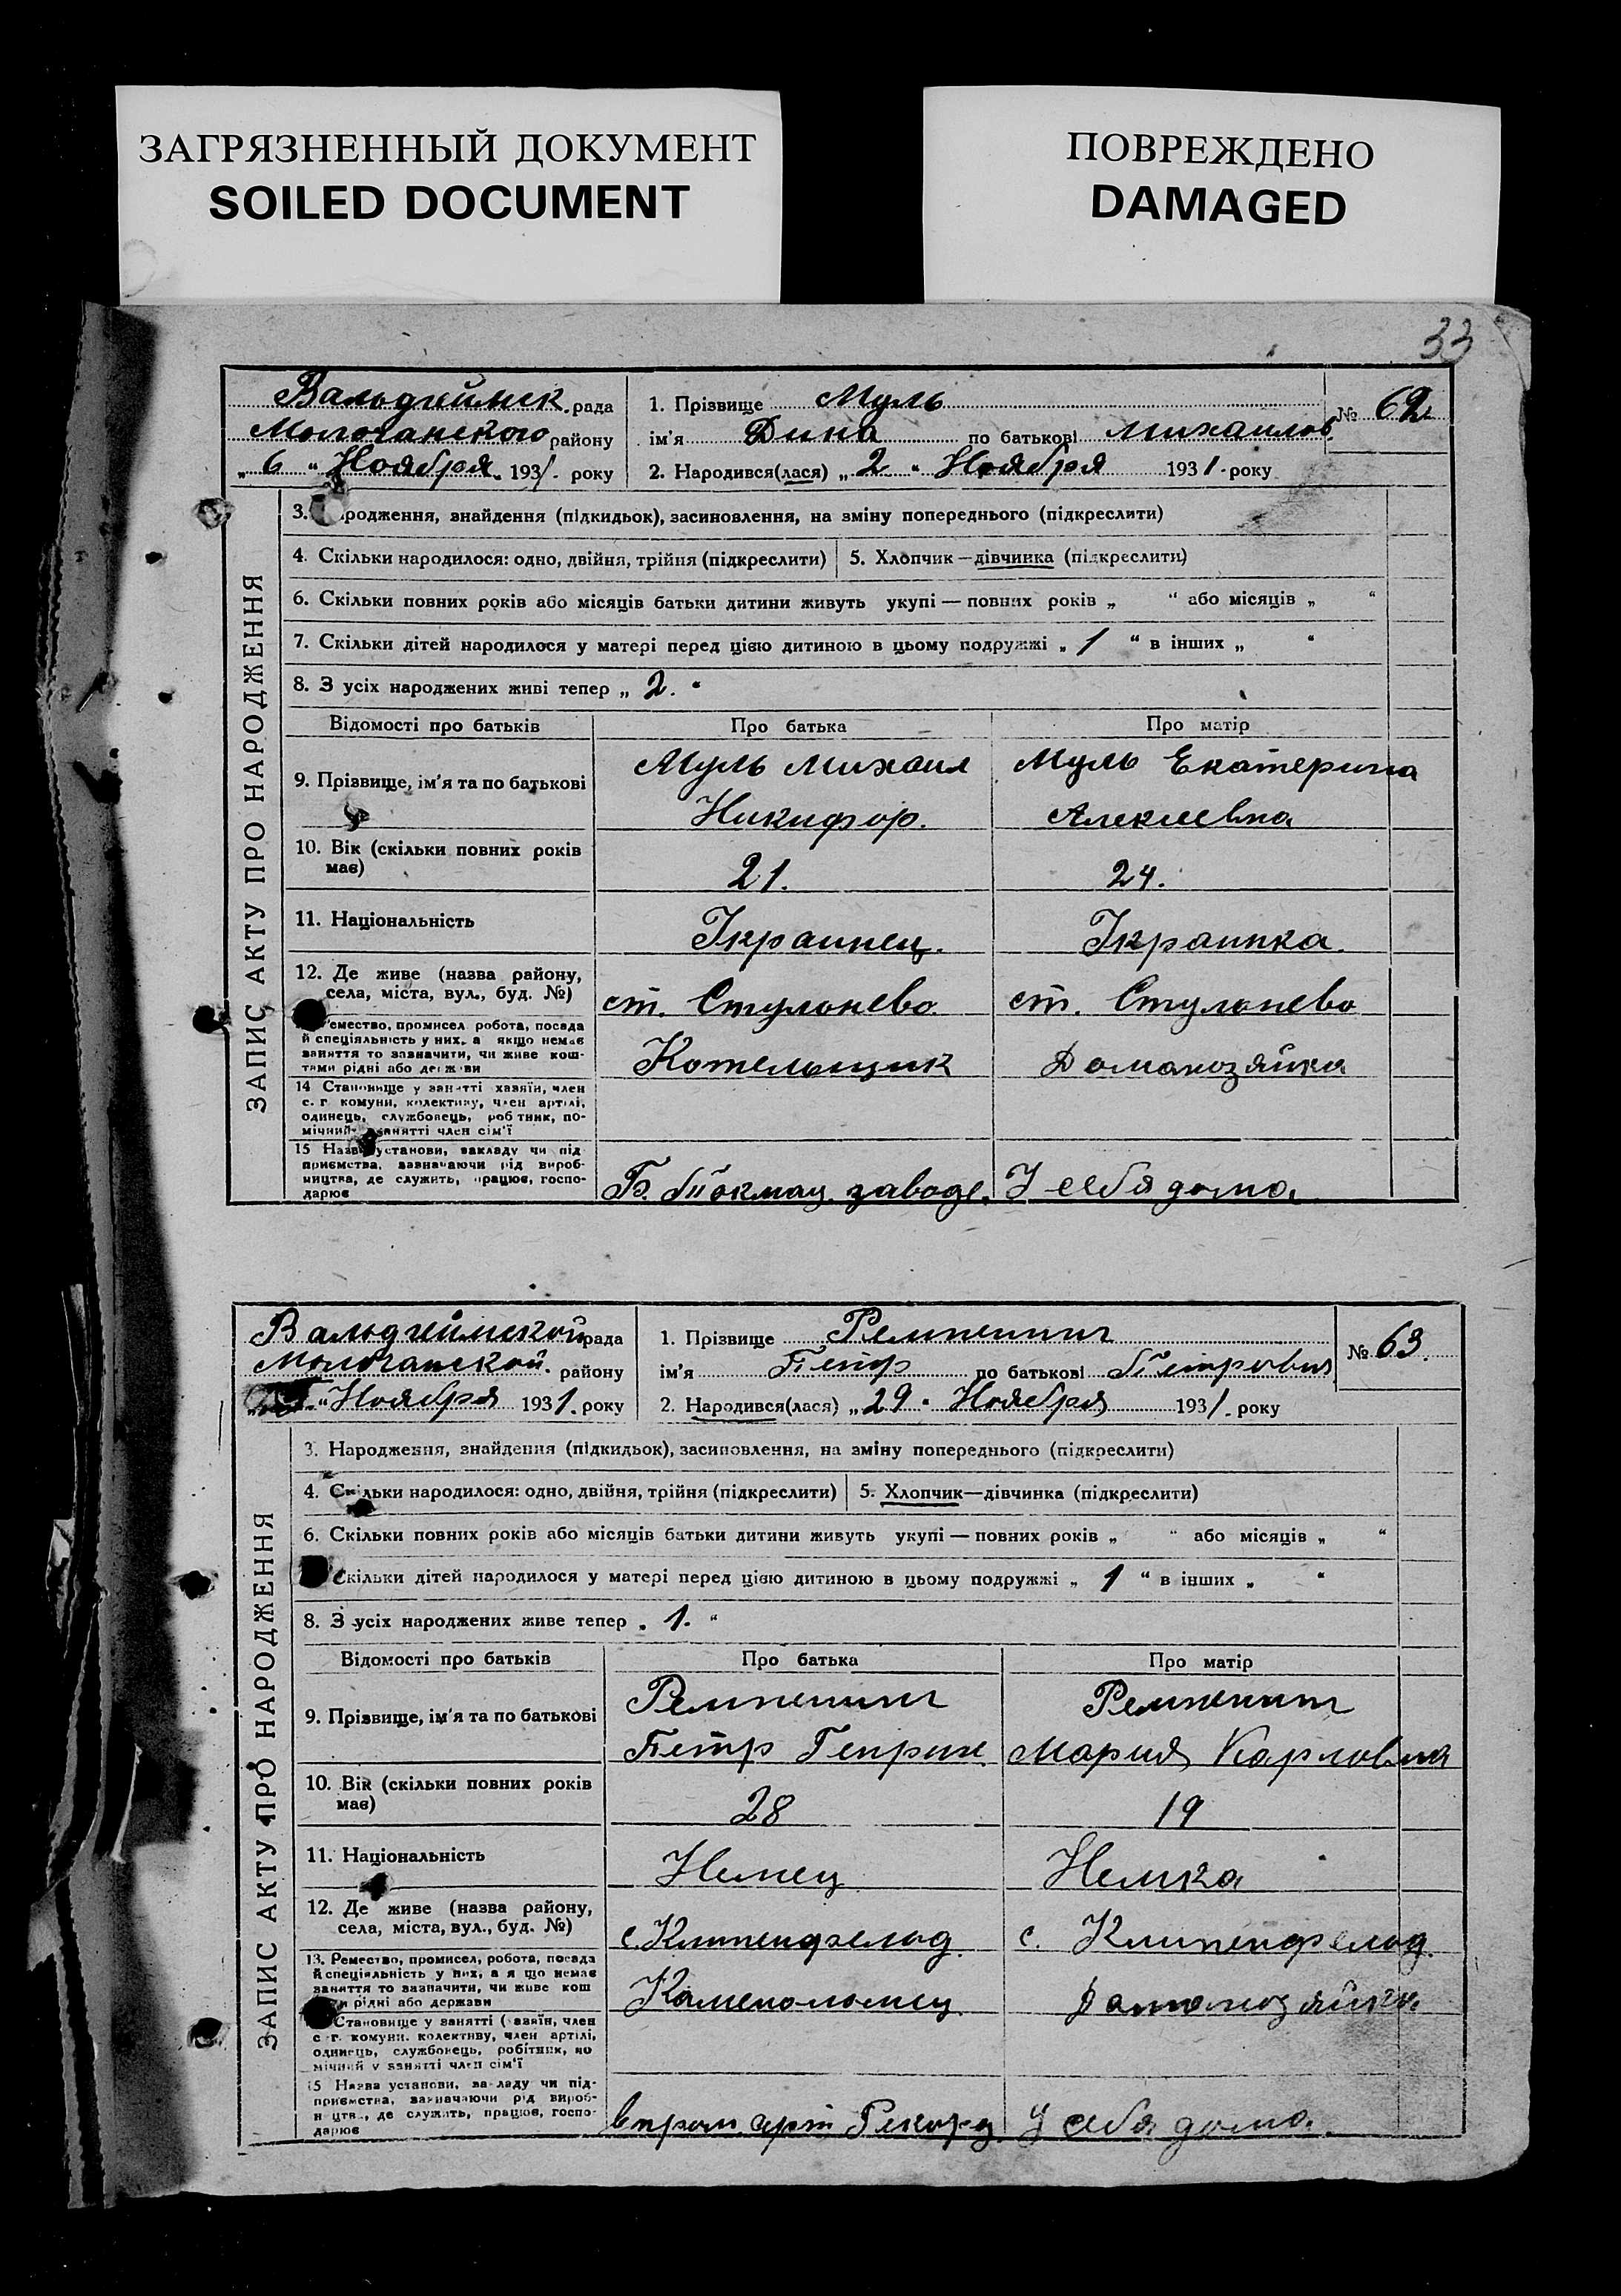 ЗАГРЯЗНЕННЫЙ ДОКУМЕНТ
SOILED DOCUMENT
ПОВРЕЖДЕНО
DAMAGED
33
ЗАПИС АКТУ ПРО НАРОДЖЕННЯ
Вальдгеймск. рада
Молочанского району
„ 6 " Ноября. 1931. року
1. Прізвище Муль
№ 62
ім'я Дина по батькові Михайлов.
2. Народився(лася) „ 2 " Ноября 1931. року
3. родження, знайдення (підкидьок), засиновлення, на зміну попереднього (підкреслити)
4. Скільки народилося: одно, двійня, трійня (підкреслити) 5. Хлопчик—дівчинка (підкреслити)
6. Скільки повних років або місяців батьки дитини живуть укупі — повних років „ " або місяців „ "
7. Скільки дітей народилося у матері перед цією дитиною в цьому подружжі „ 1 " в інших „ "
8. З усіх народжених живі тепер „ 2. "
Відомості про батьків Про батька Про матір
9. Прізвище, ім'я та по батькові
Муль Михаил Муль Екатерина
Никифор. Алексеевна
10. Вік (скільки повних років має)
21. 24.
11. Національність
Україинец. Україинка.
12. Де живе (назва району, села, міста, вул., буд. №)
ст. Стульнево. ст. Стульнево
емество, промисел робота, посада
й спеціяльність у них, а якщо немає
заняття то зазначити, чи живе кош-
тами рідні або держави
Котельщик Домахозяйка
14 Становище у занятті хазяїн, член
с. г. комуни, колективу, член артілі,
одинець, службовець, робітник, по-
мічний занятті член сім'ї
15 Назва установи, закладу чи під-
приємства, зазначаючи рід вироб-
ництва, де служить, працює, госпо-
дарює
Б. Токмац. заводе. У себя дома.
ЗАПИС АКТУ ПРО НАРОДЖЕННЯ
Вальдгеймской рада
Молочанской. району
" Ноября 1931. року
1. Прізвище Ремпенинг
№ 63.
ім'я Петр по батькові Петрович
2. Народився(лася) „ 29 " Ноября 1931. року
3. Народження, знайдення (підкидьок), засиновлення, на зміну попереднього (підкреслити)
4. Скільки народилося: одно, двійня, трійня (підкреслити) 5. Хлопчик—дівчинка (підкреслити)
6. Скільки повних років або місяців батьки дитини живуть укупі — повних років „ " або місяців „ "
Скільки дітей народилося у матері перед цією дитиною в цьому подружжі „ 1 " в інших „ "
8. З усіх народжених живе тепер „ 1. "
Відомості про батьків Про батька Про матір
9. Прізвище, ім'я та по батькові
Ремпенинг Ремпенинг
Петр Генрих Мария Карловна
10. Вік (скільки повних років має)
28 19
11. Національність
Немец Немка
12. Де живе (назва району, села, міста, вул., буд. №)
с. Клипенфельд. с. Клипенфельд.
13. Ремество, промисел, робота, посада
й спеціяльність у них, а я що немає
заняття то зазначити, чи живе кош
рідні або держави
Каменоломец. Домахозяйка.
Становище у занятті (хазяїн, член
с г. комуни, колективу, член артілі,
одинець, службовець, робітник, по
мічний у занятті член сім'ї
15 Назва установи, закладу чи під-
приємства, зазначаючи рід вироб-
ництва, де служить, працює, госпо-
дарює
в пром. арт. Рекорд. У себя дома.